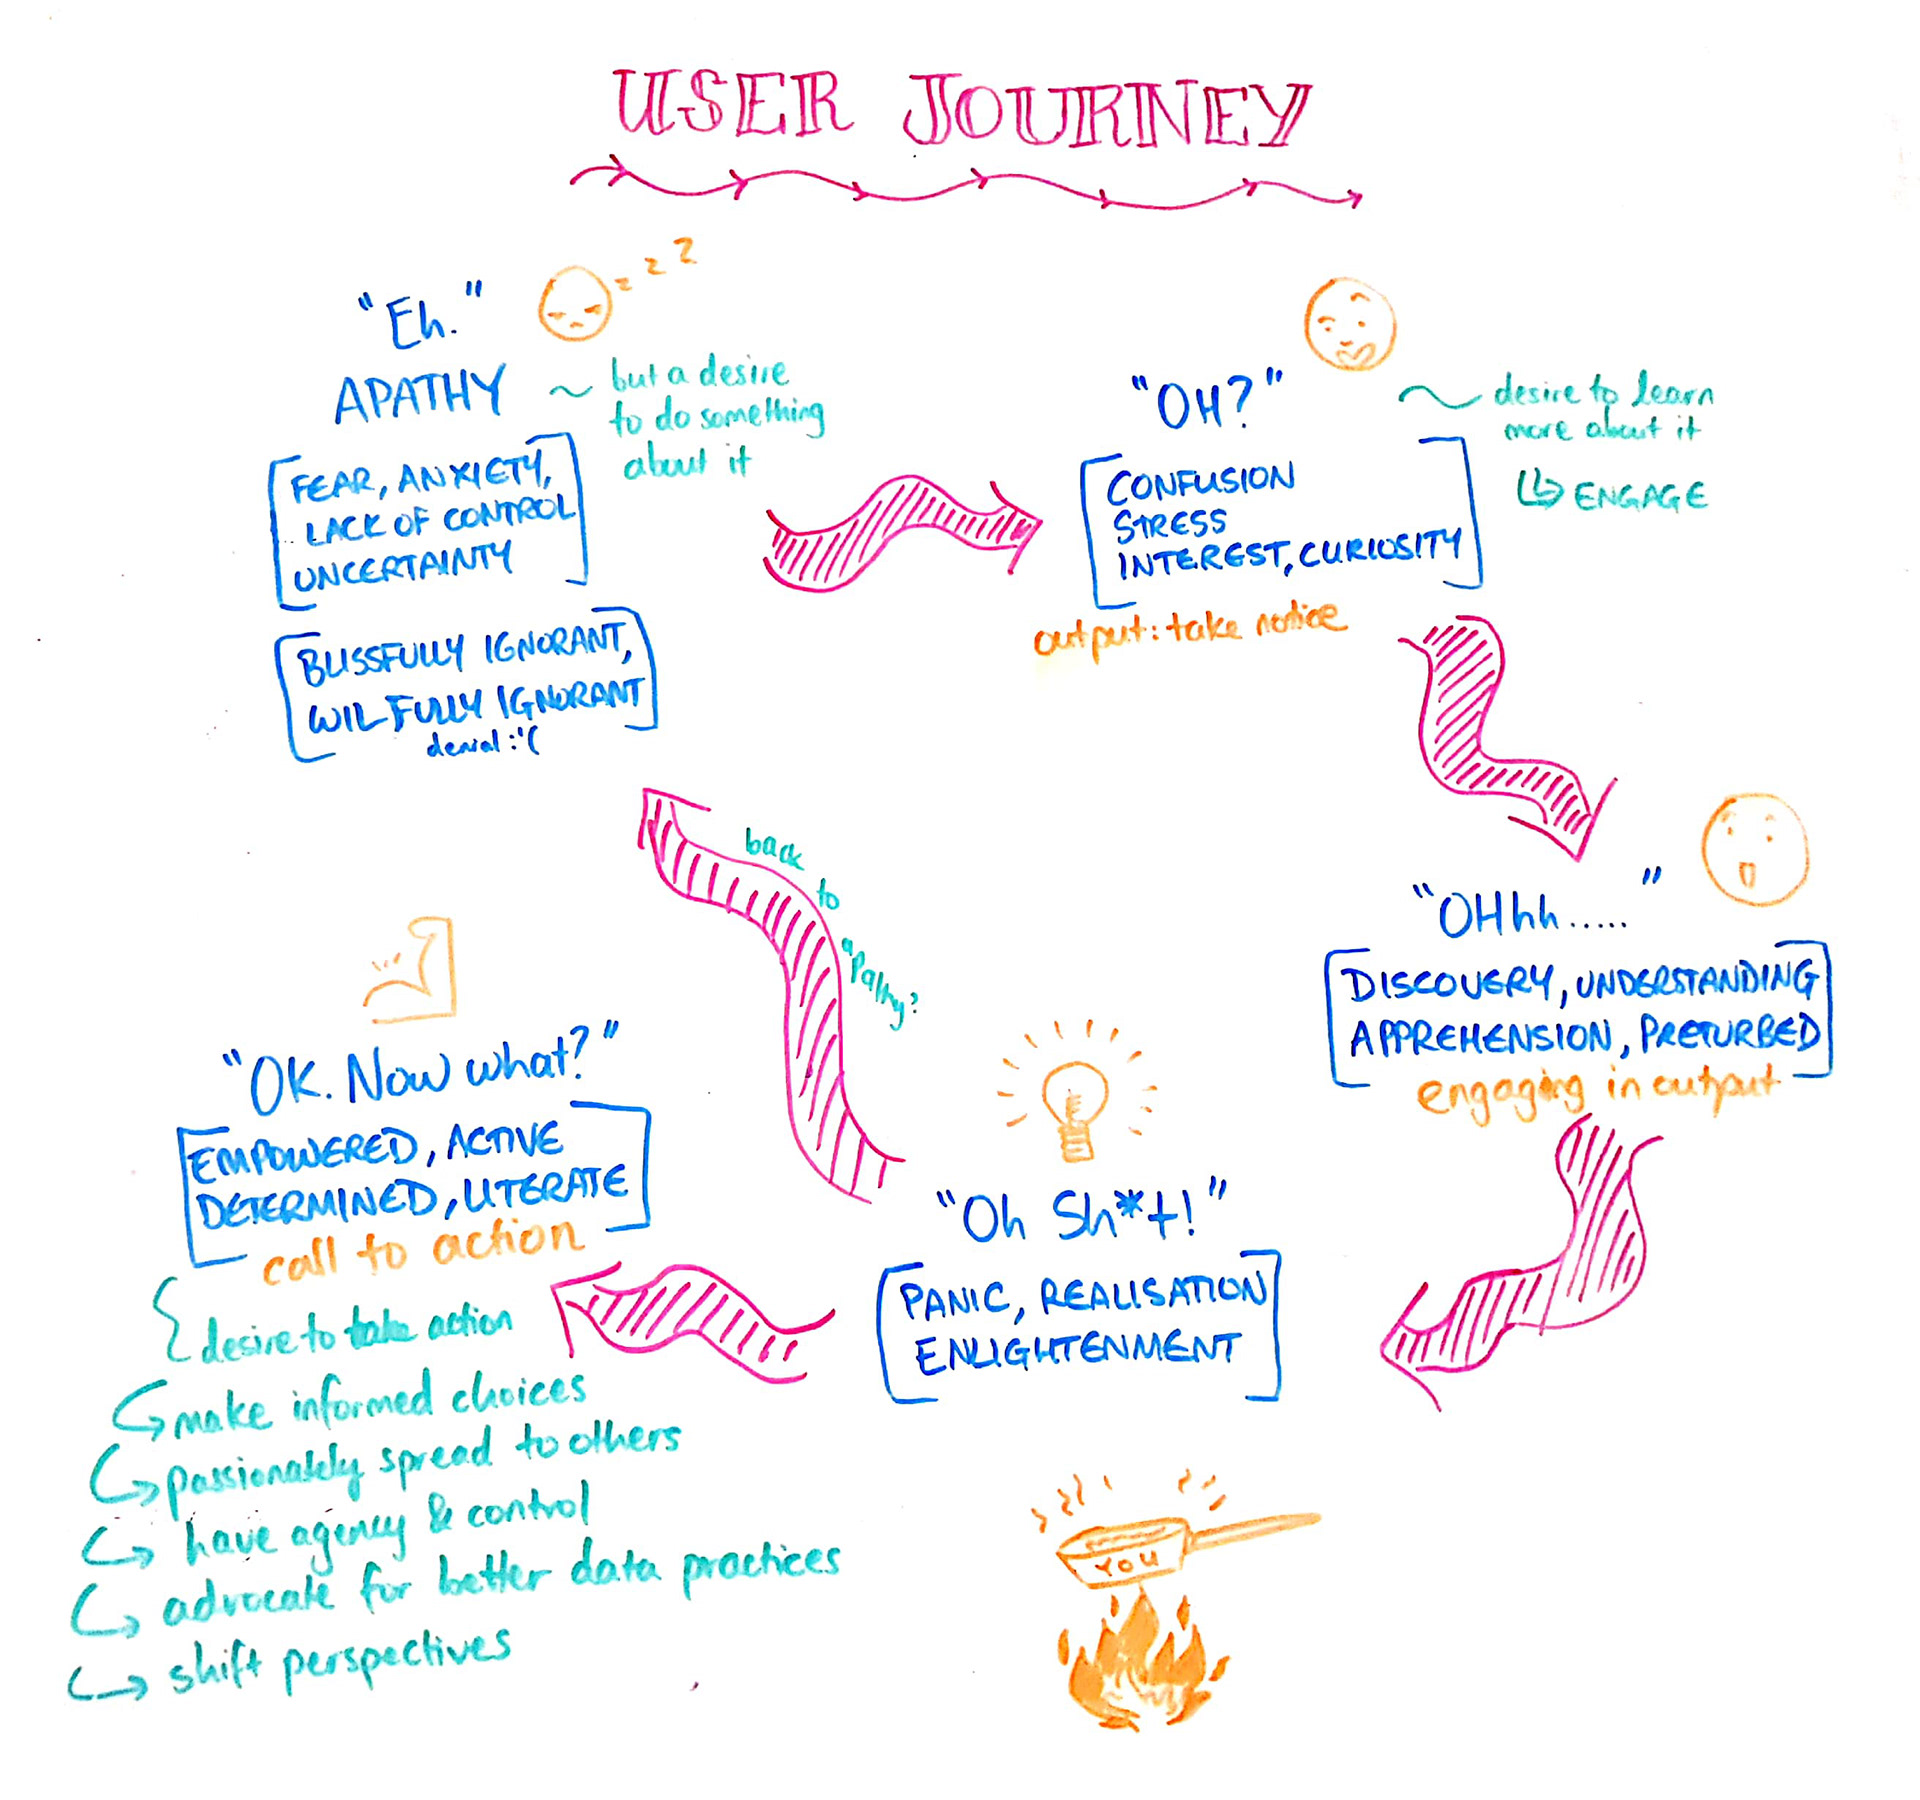 USER JOURNEY
z z z
"Eh."
APATHY
~ but a desire
to do something
about it
[FEAR, ANXIETY,
LACK OF CONTROL
UNCERTAINTY]
[BLISSFULLY IGNORANT,
WILFULLY IGNORANT]
denial :'(
"OH?"
~ desire to learn
more about it
↳ ENGAGE
[CONFUSION
STRESS
INTEREST, CURIOSITY]
output: take notice
"OHhh....."
[DISCOVERY, UNDERSTANDING
APPREHENSION, PRETURBED]
engaging in output
"Oh Sh*t!"
[PANIC, REALISATION
ENLIGHTENMENT]
back
to
aPathy?
"OK. Now what?"
[EMPOWERED, ACTIVE
DETERMINED, LITERATE]
call to action
{ desire to take action
↳ make informed choices
↳ passionately spread to others
↳ have agency & control
↳ advocate for better data practices
↳ shift perspectives
YOU